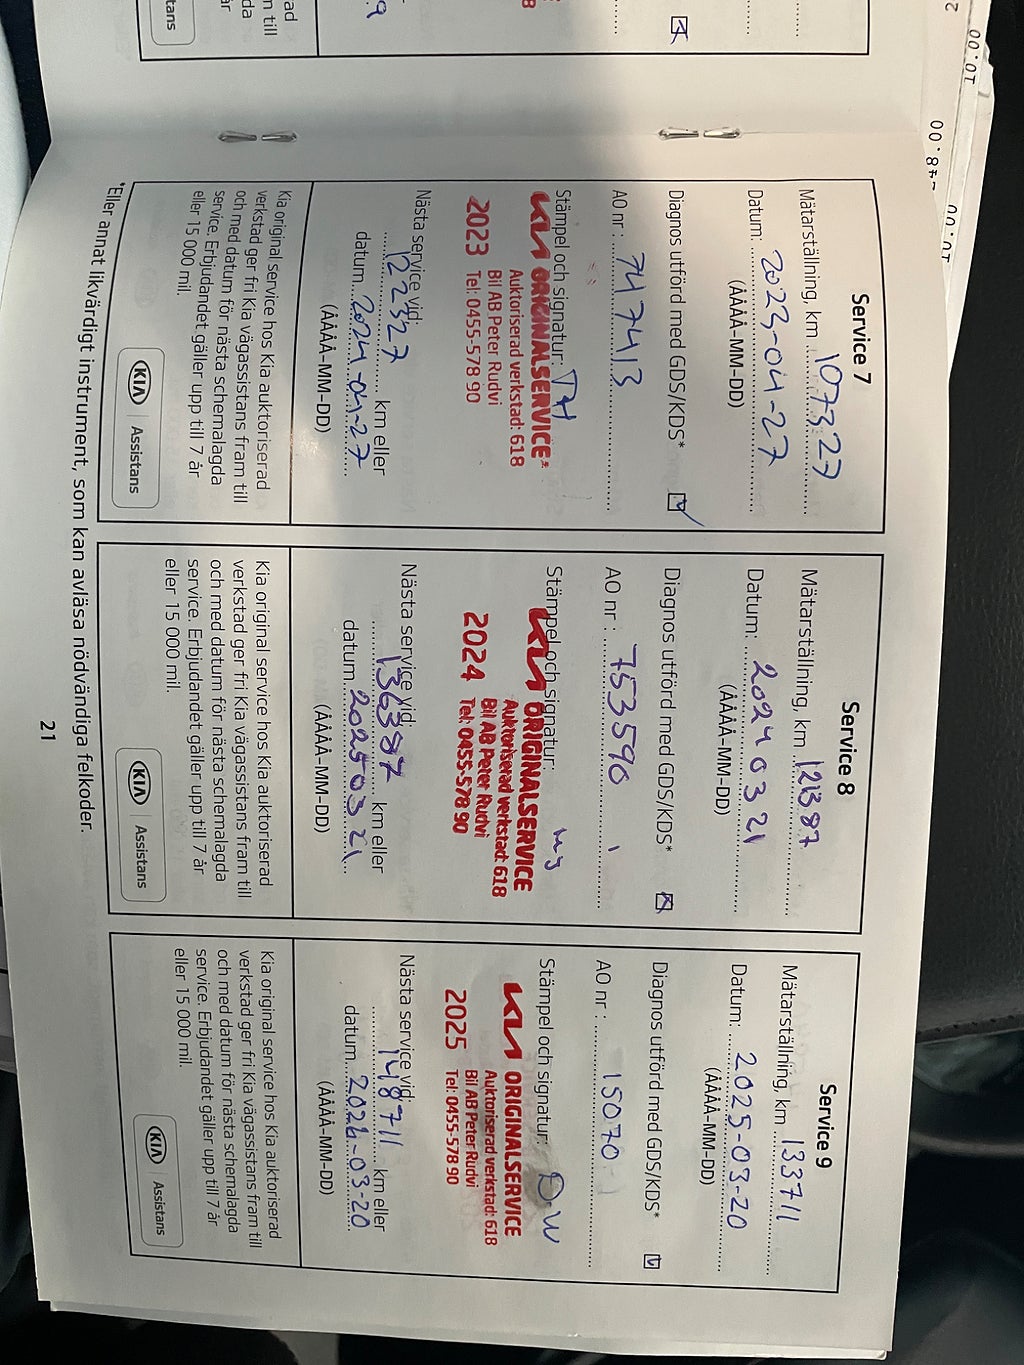 Service 7
Mätarställning, km 107327
Datum: 2023-04-27
(ÅÅÅÅ-MM-DD)
Diagnos utförd med GDS/KDS*
AO nr: 747413
Stämpel och signatur: TH
KIA ORIGINALSERVICE
Auktoriserad verkstad: 618
Bil AB Peter Rudvi
2023 Tel: 0455-578 90
Nästa service vid:
122327 km eller
datum 2024-04-27
(ÅÅÅÅ-MM-DD)
Kia original service hos Kia auktoriserad
verkstad ger fri Kia vägassistans fram till
och med datum för nästa schemalagda
service. Erbjudandet gäller upp till 7 år
eller 15 000 mil.
KIA Assistans
Service 8
Mätarställning, km 121387
Datum: 2024 03 21
(ÅÅÅÅ-MM-DD)
Diagnos utförd med GDS/KDS*
AO nr: 753590
Stämpel och signatur:
KIA ORIGINALSERVICE
Auktoriserad verkstad: 618
Bil AB Peter Rudvi
2024 Tel: 0455-578 90
Nästa service vid:
136387 km eller
datum 2025 03 21
(ÅÅÅÅ-MM-DD)
Kia original service hos Kia auktoriserad
verkstad ger fri Kia vägassistans fram till
och med datum för nästa schemalagda
service. Erbjudandet gäller upp till 7 år
eller 15 000 mil.
KIA Assistans
Service 9
Mätarställning, km 133711
Datum: 2025-03-20
(ÅÅÅÅ-MM-DD)
Diagnos utförd med GDS/KDS*
AO nr: 15070
Stämpel och signatur: DW
KIA ORIGINALSERVICE
Auktoriserad verkstad: 618
Bil AB Peter Rudvi
2025 Tel: 0455-578 90
Nästa service vid:
148711 km eller
datum 2026-03-20
(ÅÅÅÅ-MM-DD)
Kia original service hos Kia auktoriserad
verkstad ger fri Kia vägassistans fram till
och med datum för nästa schemalagda
service. Erbjudandet gäller upp till 7 år
eller 15 000 mil.
KIA Assistans
*Eller annat likvärdigt instrument, som kan avläsa nödvändiga felkoder.
21